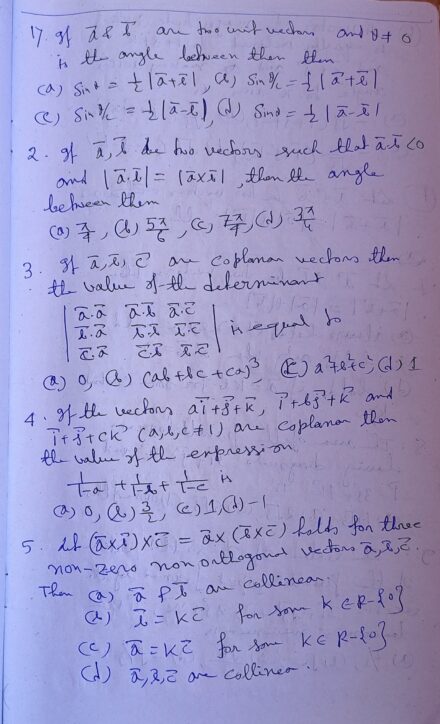 1). If a̅ & b̅ are two unit vectors and θ ≠ 0
is the angle between them then
(a) Sinθ = ½|a̅+b̅|, (b) Sin θ/2 = ½|a̅+b̅|
(c) Sin θ/2 = ½|a̅-b̅|, (d) Sinθ = ½|a̅-b̅|
2. If a̅, b̅ be two vectors such that a̅.b̅<0
and |a̅.b̅| = |a̅×b̅|, then the angle
between them
(a) π/4, (b) 5π/6, (c) 7π/4, (d) 3π/4
3. If a̅, b̅, c̅ are coplanar vectors then
the value of the determinant
| a̅.a̅ a̅.b̅ a̅.c̅ |
| b̅.a̅ b̅.b̅ b̅.c̅ | is equal to
| c̅.a̅ c̅.b̅ c̅.c̅ |
(a) 0, (b) (ab+bc+ca)³, (c) a²+b²+c², (d) 1
4. If the vectors ai⃗+j⃗+k⃗, i⃗+bj⃗+k⃗ and
i⃗+j⃗+ck⃗ (a,b,c≠1) are coplanar then
the value of the expression
1/1-a + 1/1-b + 1/1-c is
(a) 0, (b) 3/2, (c) 1, (d) -1
5. Let (a̅×b̅)×c̅ = a̅×(b̅×c̅) holds for three
non-zero non orthogonal vectors a̅,b̅,c̅.
Then (a) a̅ & b̅ are collinear.
(b) b̅ = kc̅ for some k∈R-{0}
(c) a̅ = kc̅ for some k∈R-{0}
(d) a̅,b̅,c̅ are collinear.